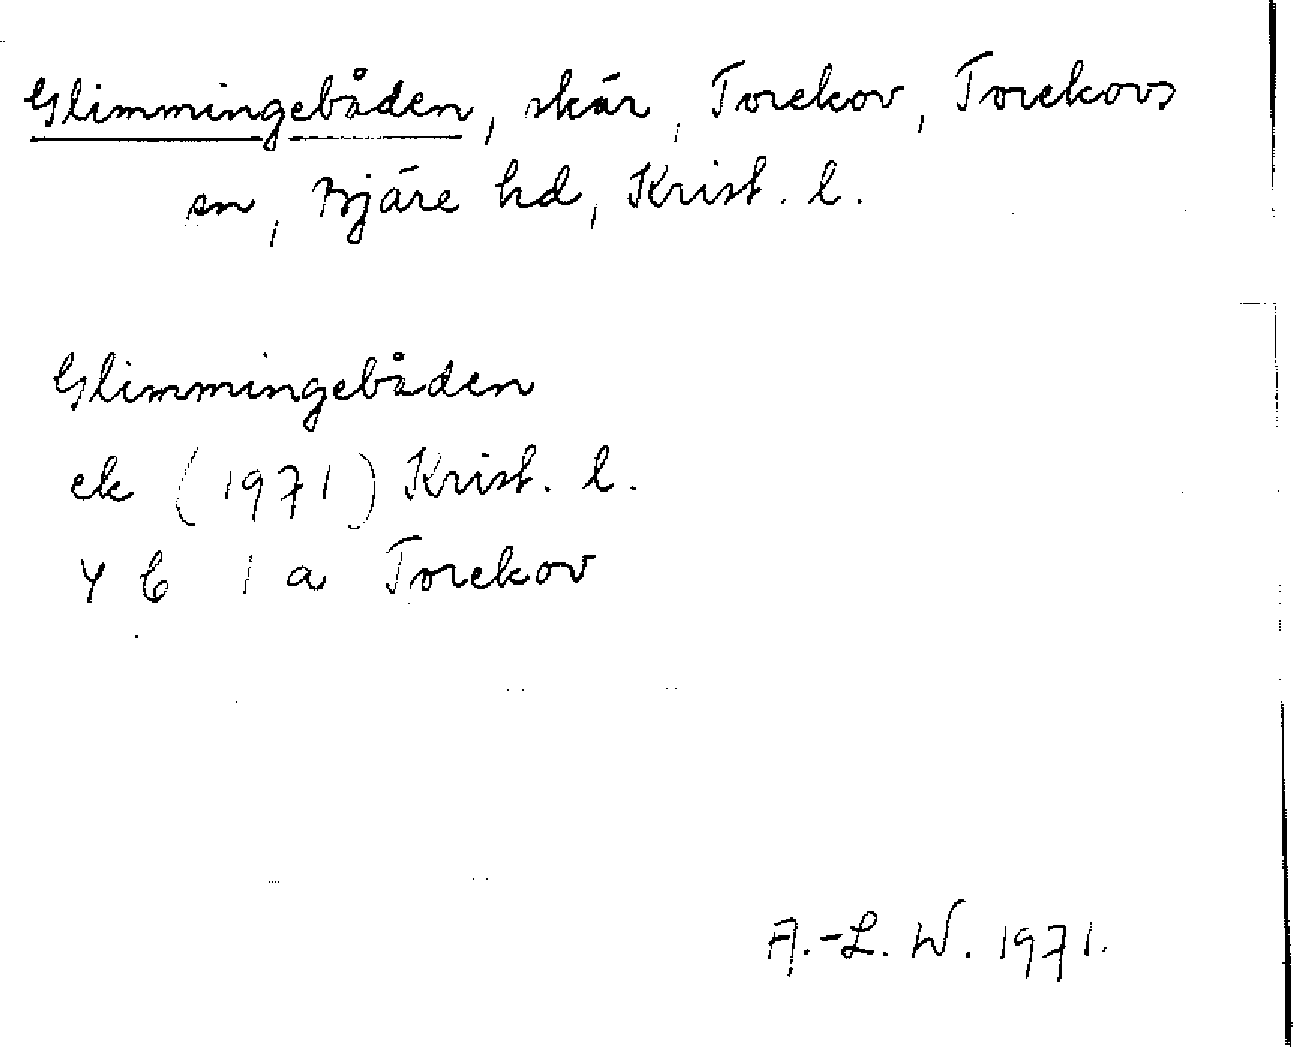 Glimmingebåden, skär, Torekov, Torekovs
sn, Bjäre hd, Krist. l.
Glimmingebåden
ek (1971) Krist. l.
4 C 1 a Torekov
A.-L. W. 1971.